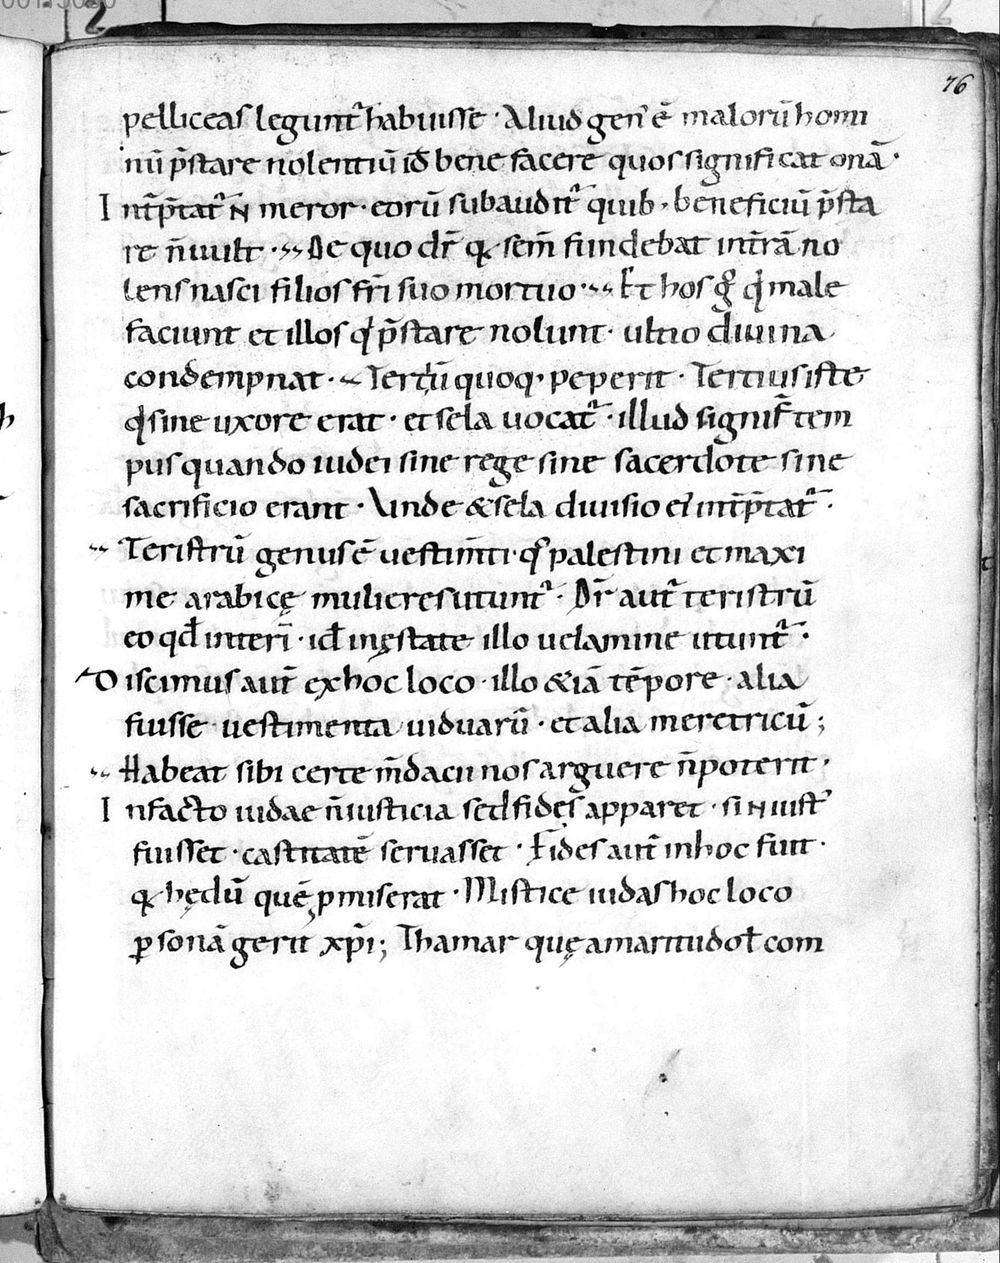 76
pelliceas legunt᷑ habuisse · Aliud gen᷒ ē malorū homi
nū p̄stare nolentiū id̄ bene facere quos significat onā ·
Int̄p̄tat᷑ N̄ meror · eorū subaudit᷑ quib, beneficiū p̄sta
re n̄ uult · De quo dr̄ q sem̄ fundebat int̄rā no
lens nasci filios fr̄i suo mortuo · Et hos gͦ qⁱ male
faciunt et illos qⁱ p̄stare nolunt · ultio diuina
condempnat · Tertiū quoq, peperit · Tertius iste
qⁱ sine uxore erat · et sela uocat᷑ · illud signif̄ tem
pus quando iudei sine rege sine sacerdote sine
sacrificio erant · Unde & sela diuisio ei᷒ int̄p̄tat᷑ ·
Teristrū genus ē uestim̄ti · qͦ palestini et maxi
me arabicę mulieres utunt᷑ · Dr̄ aut̄ teristrū
eo qd̄ interī · id̄ in ęstate illo uelamine utunt᷑ ·
Discimus aut̄ ex hoc loco · illo & iā tēpore · alia
fuisse uestimenta uiduarū · et alia meretricū ;
Habeat sibi certe m̄dacii nos arguere n̄ poterit ·
In facto iudae n̄ iusticia sed fides apparet · si N̄ iust᷒
fuisset · castitatē seruasset · Fides aut̄ in hoc fuit ·
q hędū quē ꝓmiserat · Mistice iudas hoc loco
ꝑsonā gerit xp̄i ; Thamar quę amaritudo ł com